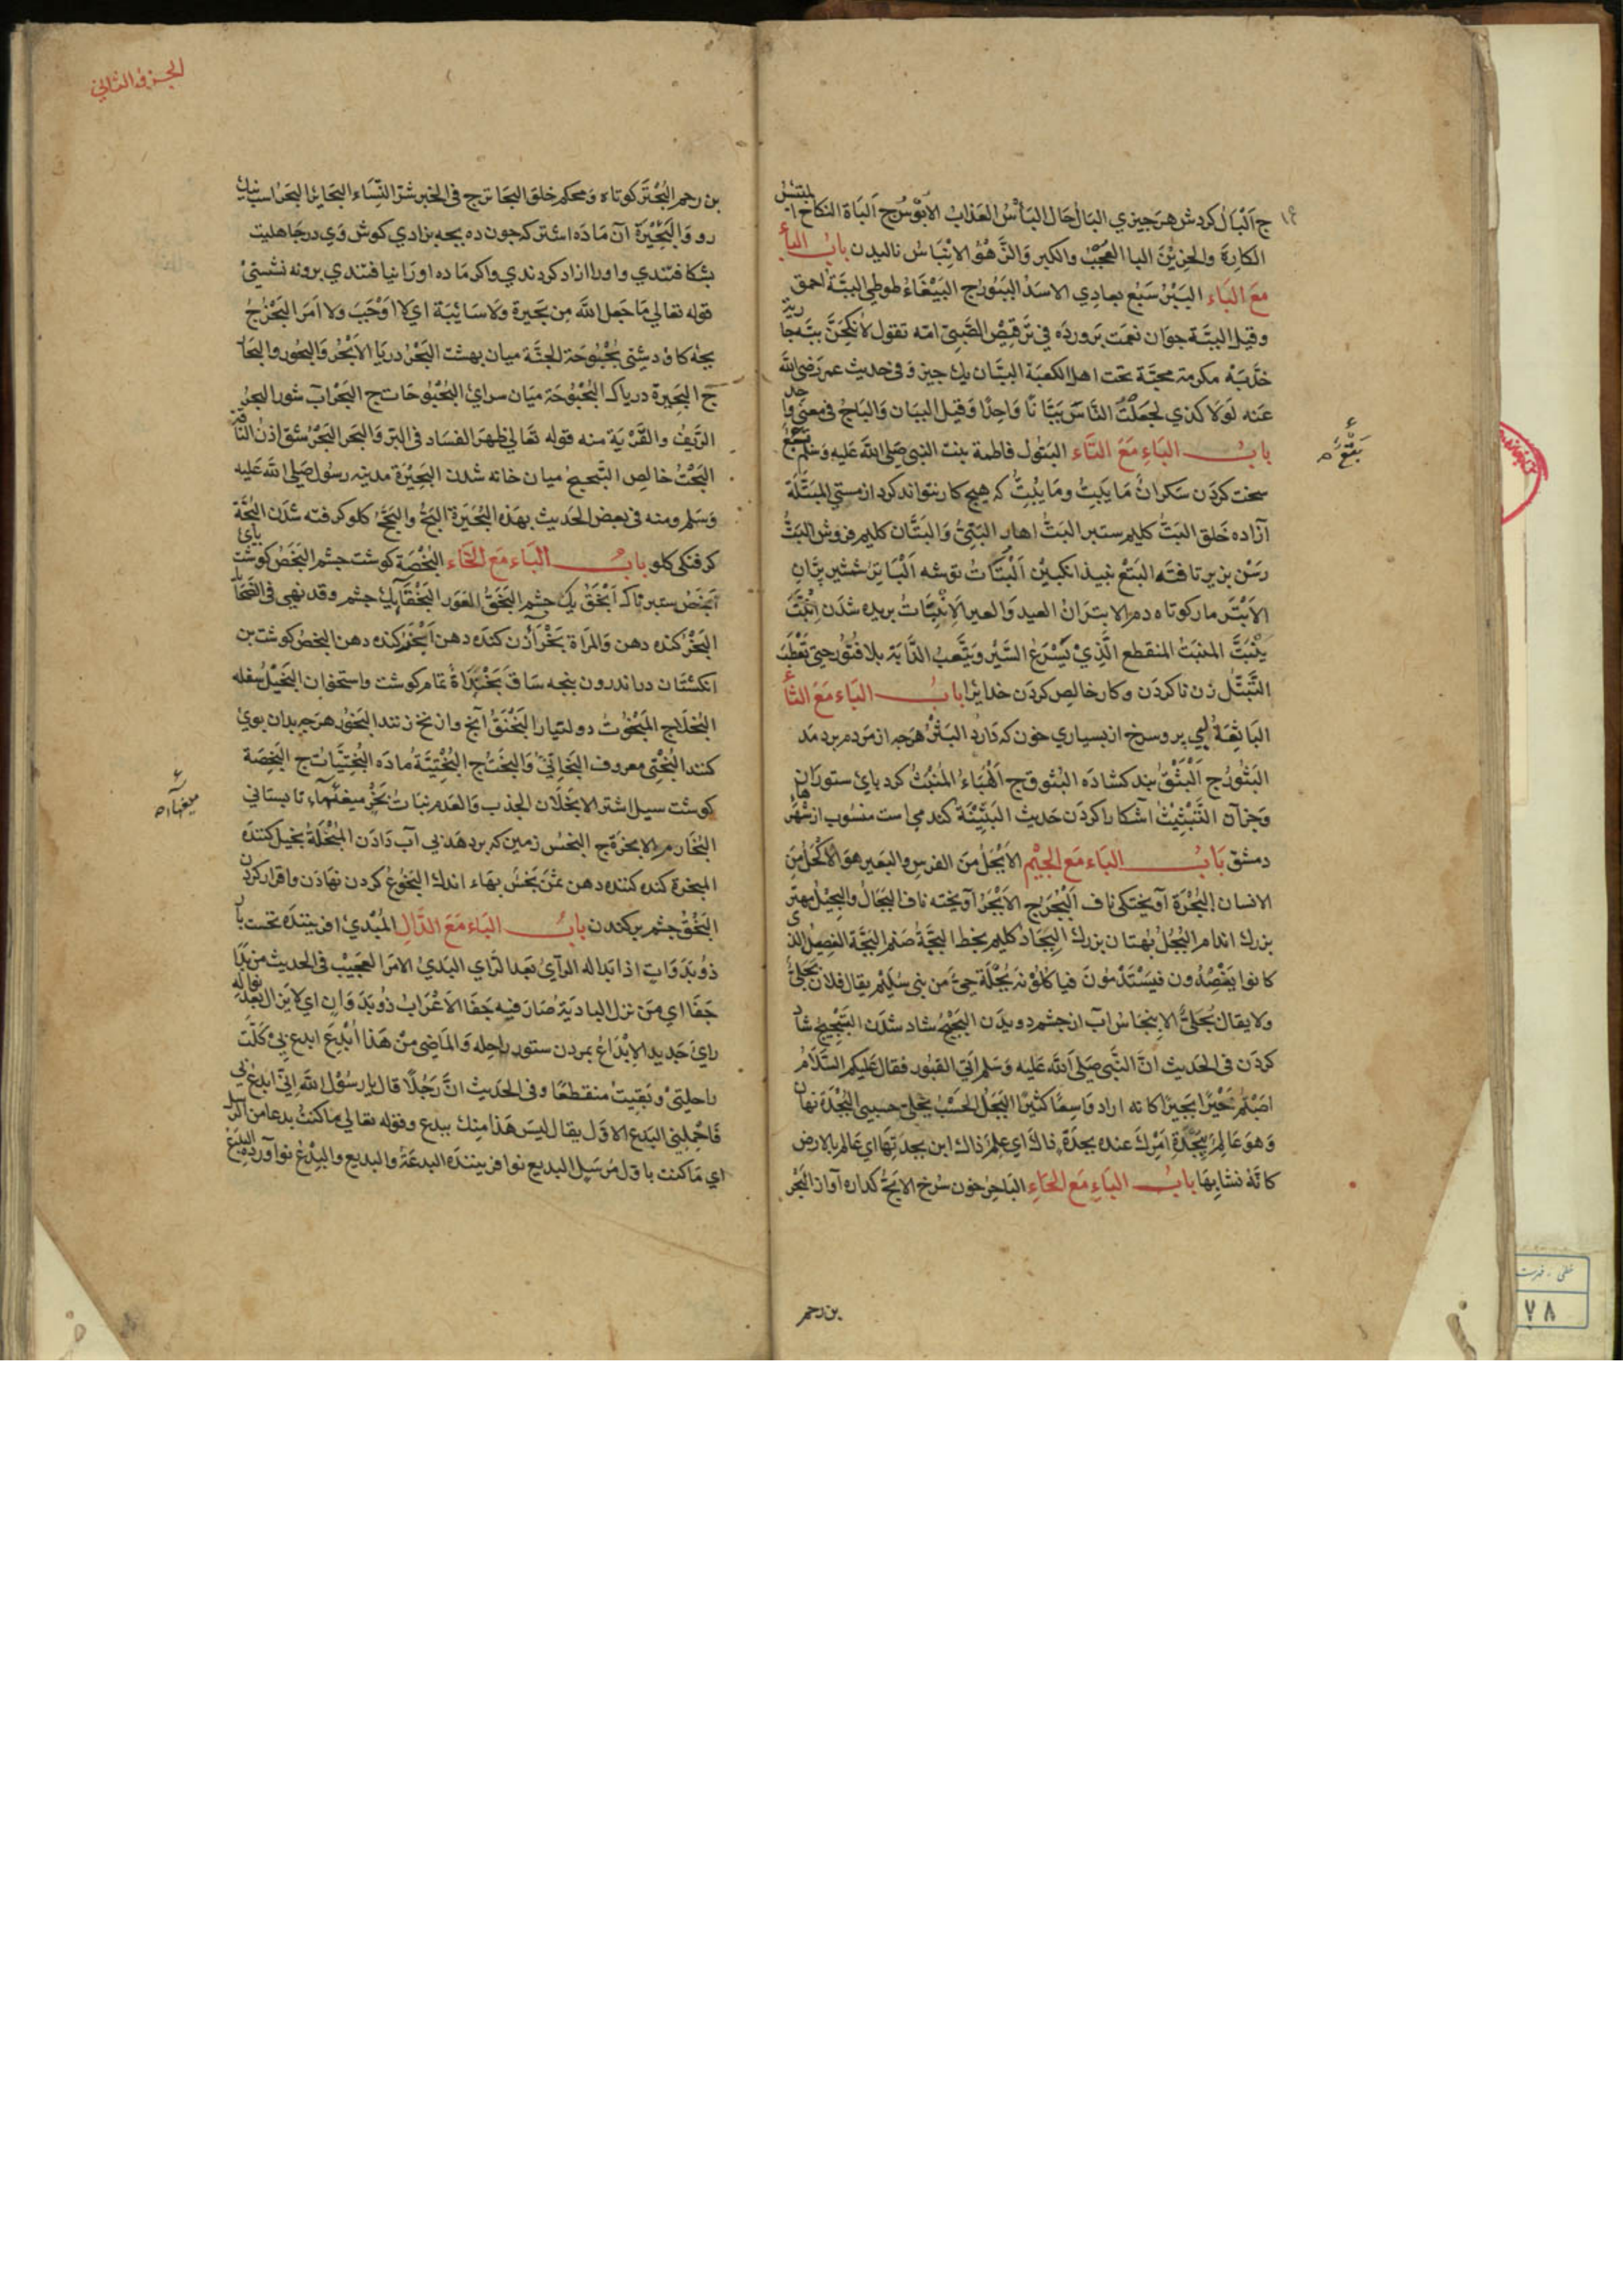 ج البال كردش هر جيزي البال حال البأس العذاب الابؤس ج الباة النكاح المبتئس
الكاره والحزين البا العجب والكبر والزهو الابتباس ناليدن باب الباء
مع الباء الببر سبع يعادي الاسد الببور ج الببغاء طوطي الببة احمق
وقيل الببة جوان نعمت پرورده في ترقيص الصبي امه تقول لانكحن ببه جارية
خدبه مكرمة محبة تحت اهل الكعبة الببان يك جيز وفي حديث عمر رضي الله
عنه لولا كذي لجعلت الناس ببانا واحدا وقيل الببان والباج في معنى واحد
باب الباء مع التاء البتول فاطمة بنت النبي صلى الله عليه وسلم
سخت كردن سكران ما يبت وما يبت كه هيچ كار نتواند كرد از مستي المبتلة
آزاده خلق البت كليم ستبر البت اهار البتي والبتات كليم فروش البت
رسن بزير تافته البتع نبيذ انكبين البتات توشه الباتر شمشير بران
الابتر مار كوتاه دم الابتران العبد والعير الانبتات بريده شدن انبت
ينبت المنبت المنقطع الذي يسرع السير ويتعب الدابة بلا فتور حتى تعطب
التبتل زن ناكردن وكار خالص كردن خدايرا باب الباء مع الثاء
الباثعة لبي پر وسرخ از بسياري خون كه دارد البثر هرجه از مردم بردمد
البثور ج البثق بند كشاده البثوق ج الهباء المنبث كرد پاي ستوران
وجزآن التبثيث آشكارا كردن حديث البثنية كندمي است منسوب از شهرها
دمشق باب الباء مع الجيم الابجل من الفرس والبعير هو الاكحل من
الانسان البجرة آويختكي ناف البجر ج الابجر آويخته ناف البجال والبجيل مهتر
بزرك اندام البجل بهتان بزرك البجاد كليم بخط البجة صنم البجة الفصيد الذي
كانوا يفصدون فيستدمون فياكلونه بجلة حي من بني سليم يقال فلان بجلي
ولا يقال بجلي الانبجاس آب از چشم دويدن البجح شاد شدن التبجيح شاد
كردن في الحديث ان النبي صلى الله عليه وسلم اتى القبور فقال عليكم السلام
اصبتم خيرا بجيرا كانه اراد واسعا كثيرا البجل الحسب بجلي حسبي البجدة نهان
وهو عالم ببجدة امرك عنده بجدة ذاك اي علم ذاك ابن بجدتها اي عالم بالارض
كانه نشا بها باب الباء مع الحاء الباحر خون سرخ الابح كداره آواز البحر
بن رحم
الجزو الثاني
بن رحم البحتر كوتاه ومحكم خلق البحاتر ج في الخبر شر النساء البحاير البحر اسب نيك
رو والبحيرة آن ماده اشتر كه جون ده بچه بزادي كوش وي در جاهليت
بشكافتندي واورا ازاد كردندي واكر ماده اورا نيافتندي برونه نشستي
قوله تعالى ما جعل الله من بحيرة ولا سائبة اي لا اوجب ولا امر البحزج
بچه كاو دشتي بحبوحة الجنة ميان بهشت البحر دريا الابحر والبحور والبحار
ج البحيرة درياك البحبوحة ميان سراي البحبوحات ج البحر آب شور البحر
الريف والقرية منه قوله تعالى ظهر الفساد في البر والبحر البحر شق اذن الناقة
البحت خالص التبحبح ميان خانه شدن البحيرة مدينه رسول صلى الله عليه
وسلم ومنه في بعض الحديث بهذه البحيرة البح والبحح كلو كرفته شدن البحة
كرفتكي كلو باب الباء مع الخاء البخصة كوشت چشم البخص كوشت پاي
ابخص ستبر ناك ابخق يك چشم البخق العور البخقاء يك چشم وقد نهي في الضحايا
البخر كنده دهن والمراة بخراء زن كنده دهن ابخر كنده دهن البخص كوشت بن
انكشتان در اندرون پنجه ساق بخنداة تمام كوشت واستخوان البخيل سفله
البخلا ج المبخوت دولتيار البخنق آنچ وازنخ زنند البخور هرچه بدان بوي
كنند البختي معروف البخاتي والبخت ج البختية ماده البختيات ج البخصة
كوشت سپل اشتر الابخلان الجدب والعدم نبات بخر ميغهاء تابستاني
البخار م الابخرة ج البخس زمين كه بردهد بي آب دادن المبخلة بخيل كننده
المبخرة كنده كننده دهن ثمن بخس بهاء اندك البخوع كردن نهادن واقرار كردن
البخق چشم بركندن باب الباء مع الدال المبدي افريننده نخست بار
ذو بدوات اذا بدا له الرآي بعد الراي البدي الامر العجيب في الحديث من بدا
جفا اي من نزل البادية صار فيه جفا الاعراب ذو بدوان اي لا يزال يبدو له
راي جديد الابداع بمردن ستور راحله والماضي من هذا ابدع ابدع بي كلت
راحلتي وبقيت منقطعا وفي الحديث ان رجلا قال يا رسول الله اني ابدع بي
فاحملني البدع الاول يقال ليس هذا منك ببدع وقوله تعالى ما كنت بدعا من الرسل
اي ما كنت باول مرسل البديع نو افريننده البدعة والبديع والبدع نو آورده البدع